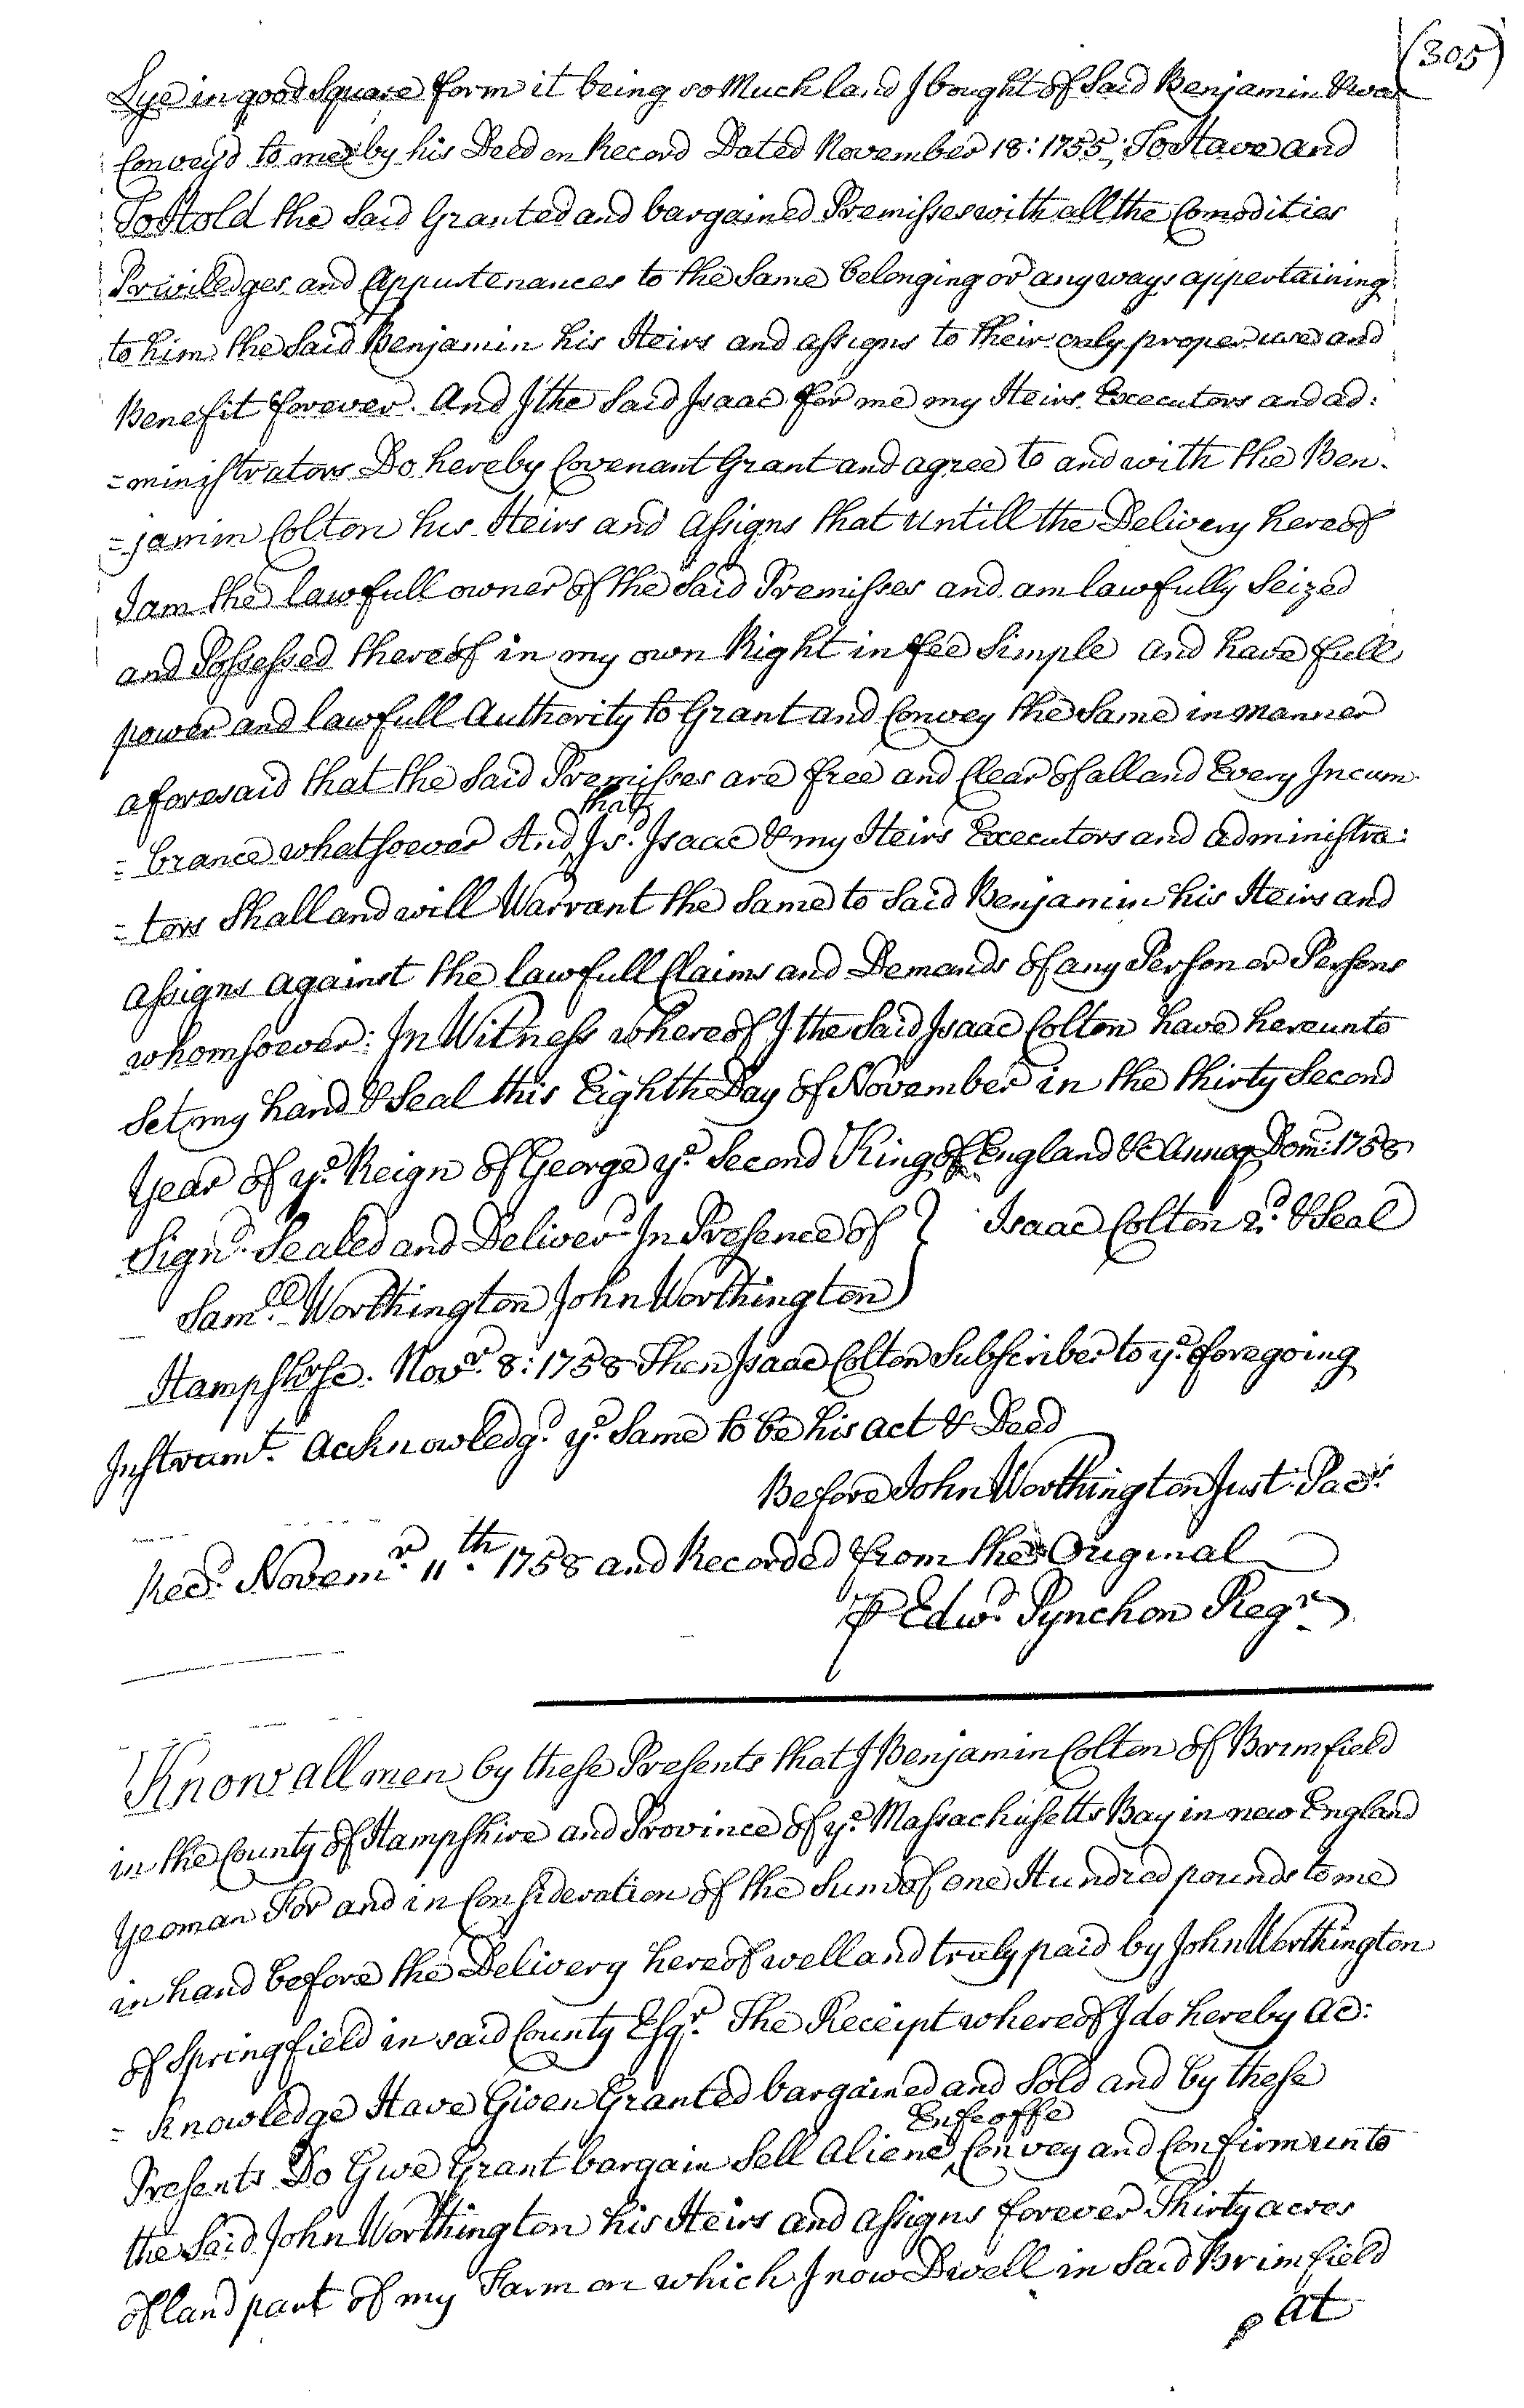 (305)
Lye in good Square form it being so Much land I bought of Said Benjamin & was
Convey'd to me by his Deed on Record Dated November 18: 1755; To Have and
To Hold the Said Granted and bargained Premisses with all the Comodities
Priviledges and Appurtenances to the Same belonging or any ways appertaining
to him the Said Benjamin his Heirs and assigns to their only proper use and
Benefit forever. And I the Said Isaac for me my Heirs Executors and ad:
=ministrators Do hereby Covenant Grant and agree to and with the Ben-
=jamin Colton his Heirs and Assigns that untill the Delivery hereof
I am the lawfull owner of the Said Premisses and am lawfully Seized
and Possessed thereof in my own Right in fee Simple and have full
power and lawfull Authority to Grant and Convey the Same in manner
aforesaid that the Said Premisses are free and Clear of all and Every Incum-
that
=brance whatsoever And I sd. Isaac & my Heirs Executors and administra:
=tors Shall and will Warrant the Same to Said Benjamin his Heirs and
assigns against the lawfull Claims and Demands of any Person or Persons
whomsoever: In Witness whereof I the Said Isaac Colton have hereunto
Set my hand & Seal this Eighth Day of November in the thirty Second
Year of ye. Reign of George ye. Second King of England &c Annoq Dom: 1758
Signd. Sealed and Deliverd In Presence of } Isaac Colton 2d. & Seal
Samll. Worthington John Worthington
Hampsh. sc. Novr. 8: 1758 Then Isaac Colton Subscriber to ye. foregoing
Instrumt. Acknowledgd. ye. Same to be his act & Deed
Before John Worthington Just: Pacs.
Recd. Novemr. 11th. 1758 and Recorded from the Original
P Edwd. Pynchon Regr.
Know all men by these Presents that I Benjamin Colton of Brimfield
in the County of Hampshire and Province of ye. Massachusetts Bay in new England
Yeoman For and in Consideration of the Sum of one Hundred pounds to me
in hand before the Delivery hereof well and truly paid by John Worthington
of Springfield in said County Esqr. The Receipt whereof I do hereby ac:
=knowledge Have Given Granted bargained and Sold and by these
Enfeoffe
Presents Do Give Grant bargain Sell Aliene Convey and Confirm unto
the Said John Worthington his Heirs and assigns forever Thirty acres
of land part of my Farm on which I now Dwell in Said Brimfield
at